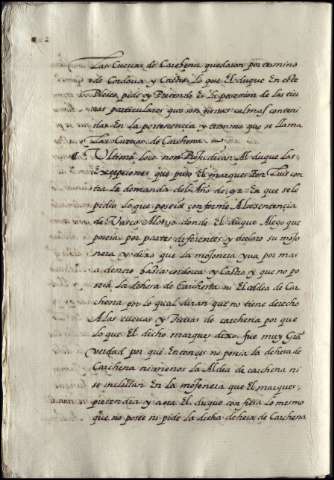 Las Cuevas de Carchena quedaron por termino
de Cordova y Castro Lo que El duque En este
Pleito pide y Pretende Es La posesion de las tie
rras particulares que son tierras calmas conteni
das En la pertenencia y termino que se llama
Las Cuevas de Carchena
Ultimo Loco non Perjudican Al duque las
Excepciones que puso El marques Don Luis con
tra la demanda del Año de En que se le
pedia lo que poseia conforme A la sentencia
de Vasco Alonso donde El duque Alego que
poseia por partes diferentes y declaro su mojo
nera y dixo que la mojonera yva por mas
adentro hasta cordova y Castro y que no po
seia la dehesa de Carchena ni El aldea de Car
chena por lo qual diran que no tiene derecho
A las cuevas y tierras de carchena por que
lo que El dicho marques dixo fue muy Gra
verdad por que Entonces no poseia la dehesa de
Carchena ni menos la Aldea de carchena ni
se incluian En la mojonera que El marques
pretendia y aora El duque confiesa lo mesmo
que no posee ni pide la dicha dehesa de Carchena